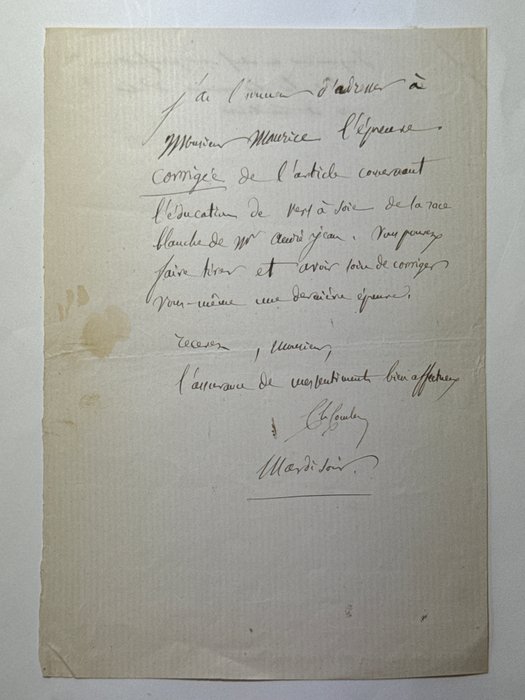 j'ai l'honneur d'adresser à
Monsieur Maurice l'épreuve
corrigée de l'article concernant
l'éducation de vers à soie de la race
blanche de Mr André Jean. Vous pouvez
faire tirer et avoir soin de corriger
vous-même une dernière épreuve.
recevez, Monsieur,
l'assurance de mes sentiments bien affectueux
Mardi soir.